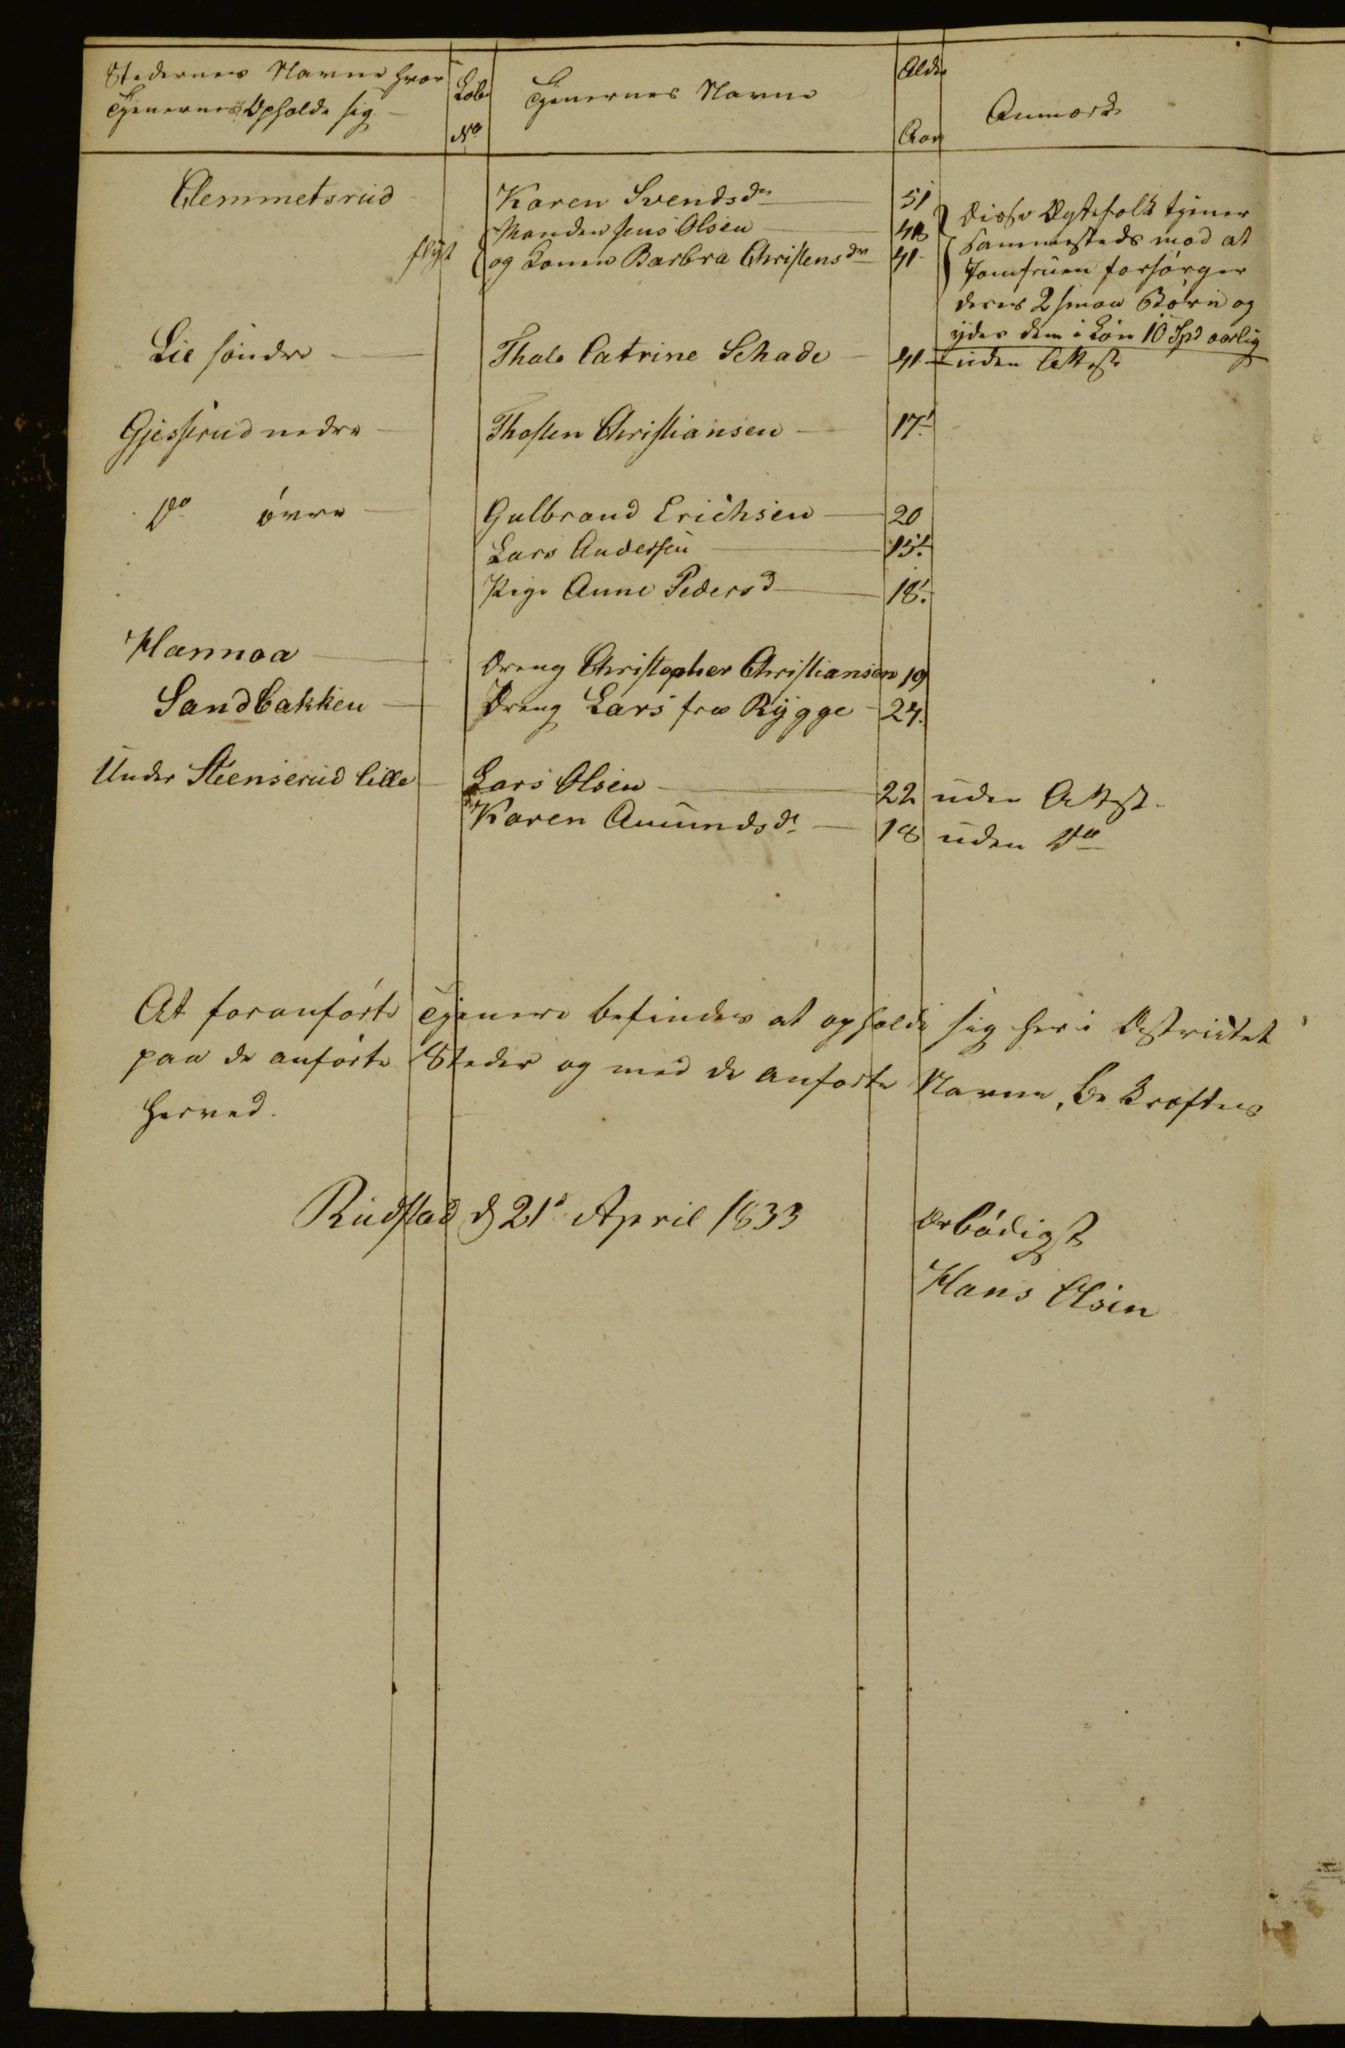 Stedernes Navne hvor Løbe Tjenernes Navne Alder Anmærk
Tjenerne Opholde sig No Aar
Clemmetsrud Karen Svendsdr 51
Manden Jens Olsen 48 Disse Ægtefolk tjener
flyt og Konen Barbra Christensdr 41 sammesteds mod at
Jomfruen forsørger
deres 2 smaa Børn og
yder dem i Løn 10 Spd aarlig
Lie søndre Thale Catrine Schade 41 uden Attest
Gjessrud nedre Thosten Christiansen 17
Do øvre Gulbrand Erichsen 20
Lars Anderssen 15
Pige Anne Pedersd 18
Hannaa Dreng Christopher Christiansen 19
Sandbakken Dreng Lars fra Rygge 24
Under Steenserud lille Lars Olsen 22 uden Attest
Karen Amundsdr 18 uden Do
At foranførte Tjenere befindes at opholde sig her i Distriktet
paa de anførte Steder og med de anførte Navne, bekræftes
herved.
Rudstad d 21de April 1833 Ærbødigst
Hans Olsen